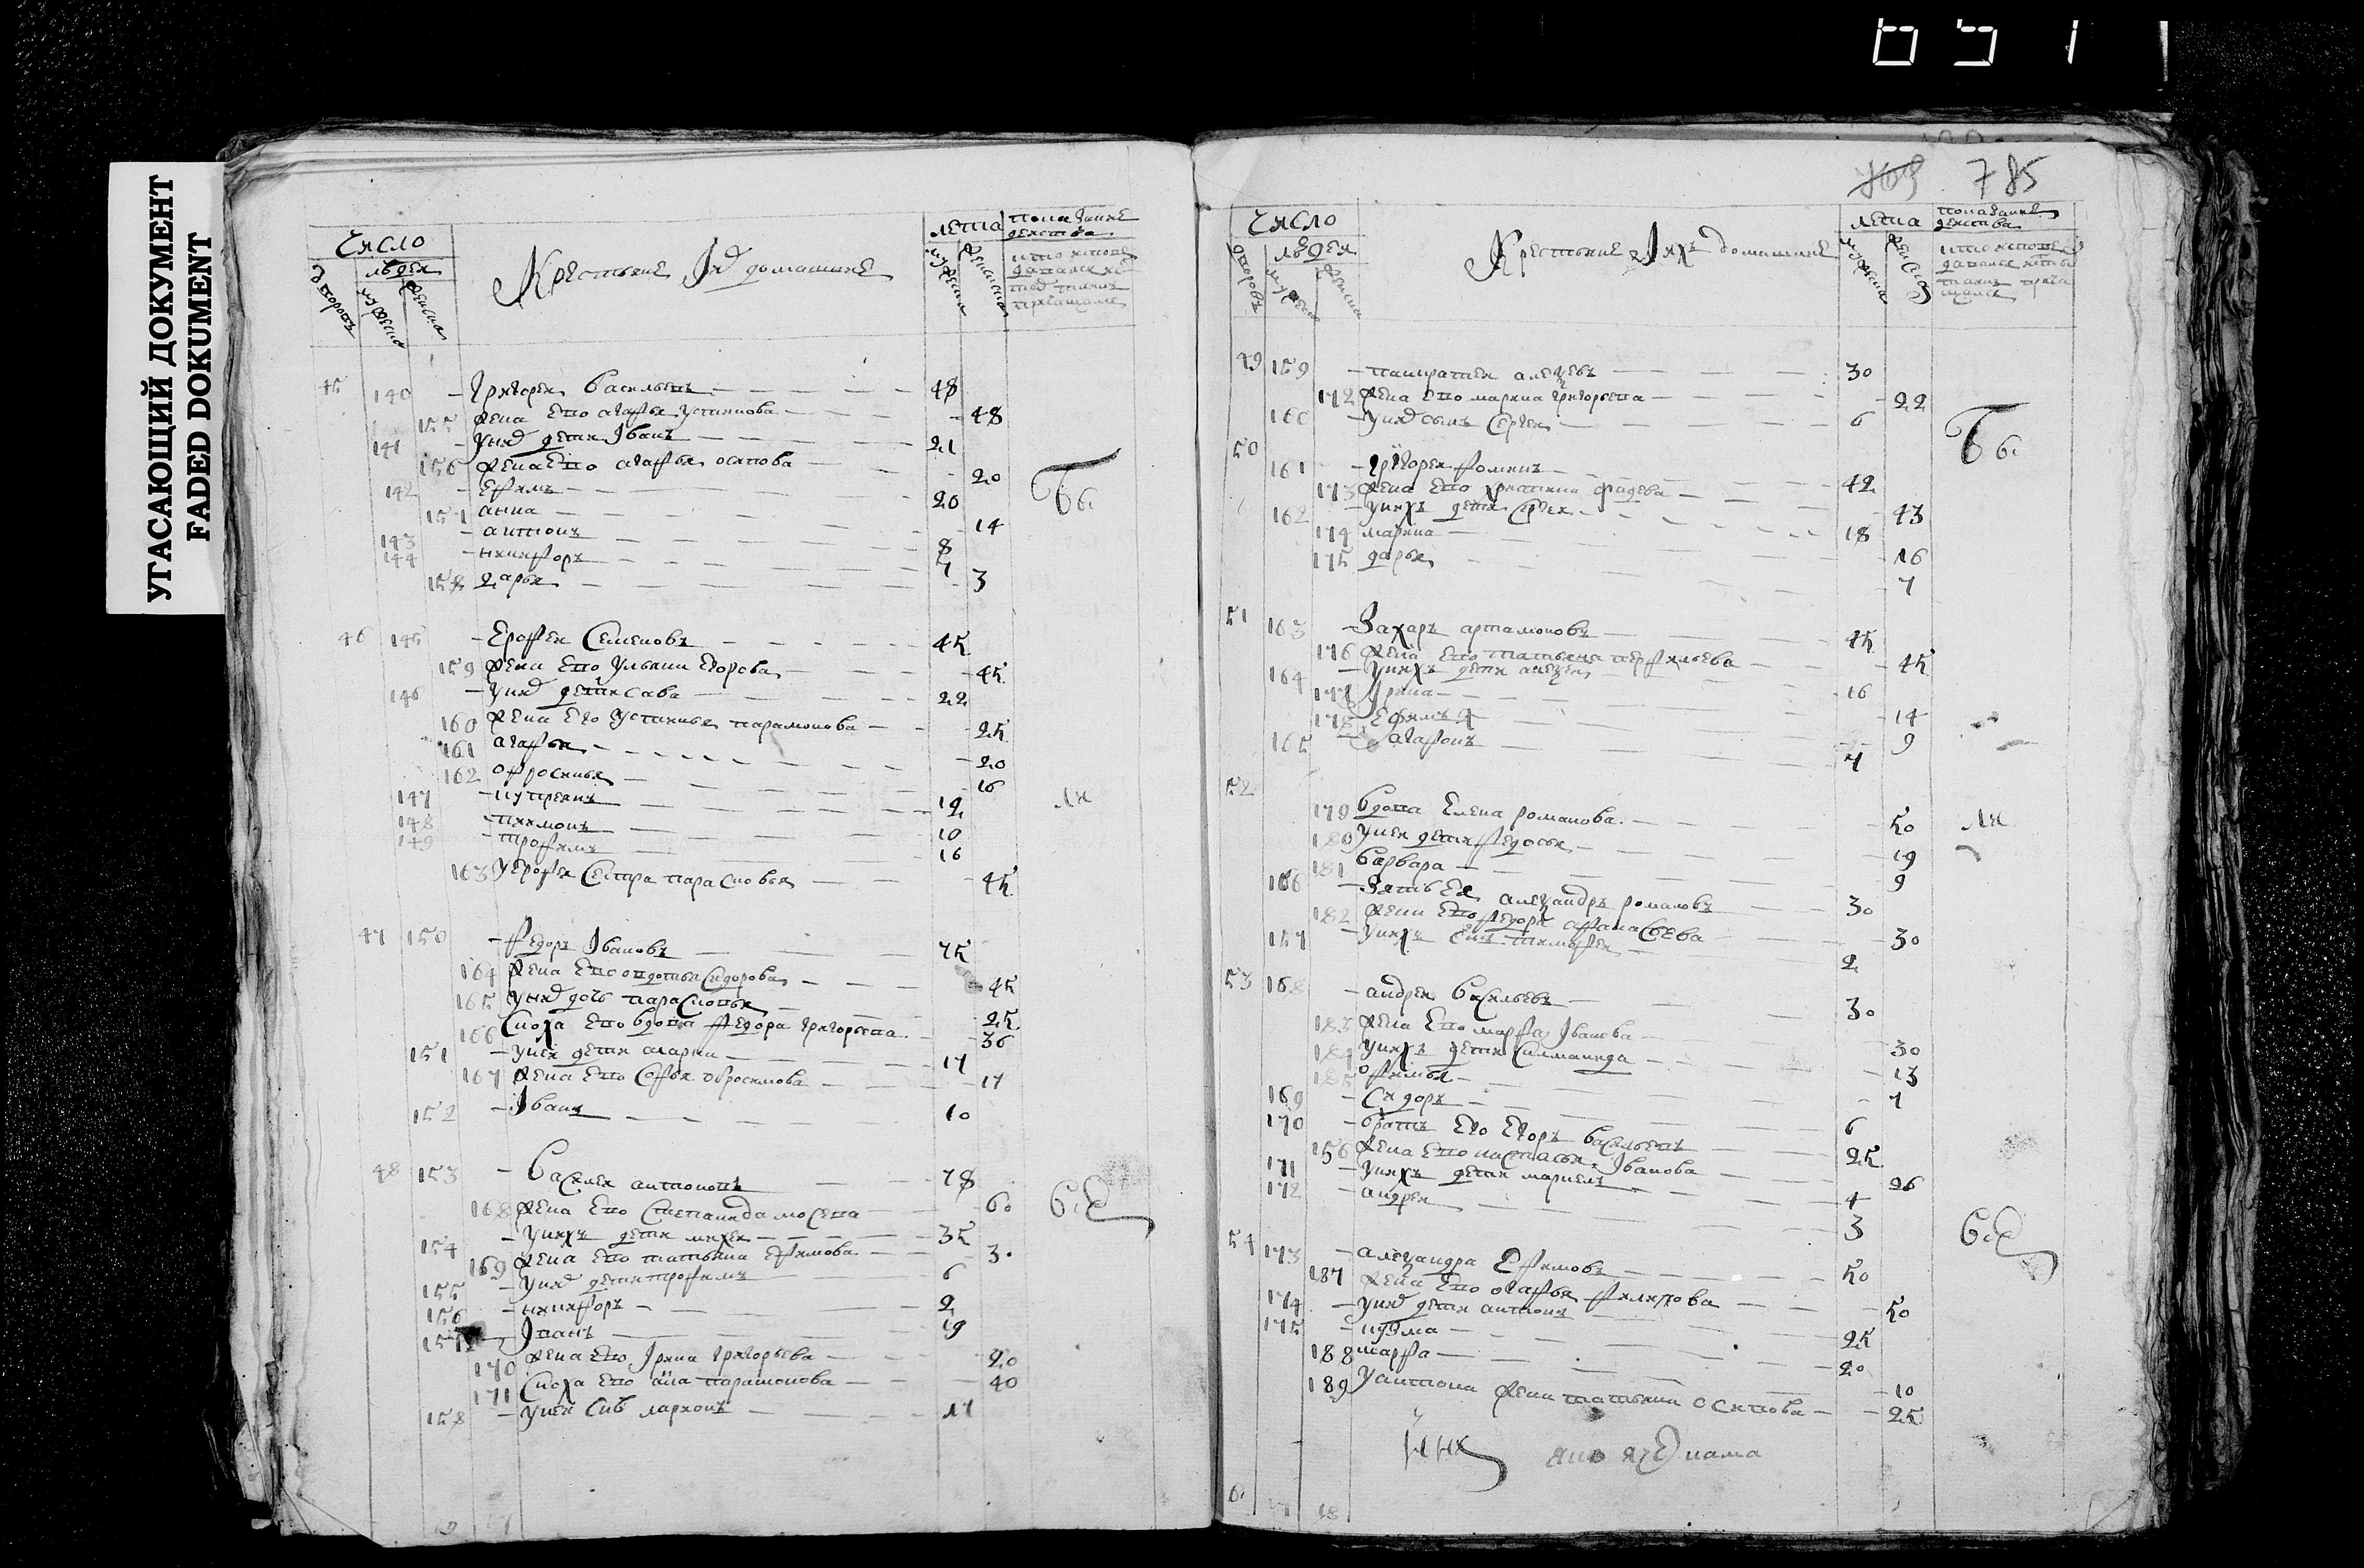 651
УГАСАЮЩИЙ ДОКУМЕНТ
FADED DOKUMENT
число
людеи
дворовъ
мужеска
женска
Крестьяне Ихъ домашние
лета
мужеска
женска
показание
действа
45 140 Григореи Васильевъ 48
155 жена ево агафья устинова 48
141 У них дети Iванъ 21
156 жена ево агафья осипова 20
142 ефимъ 20
157 анна 14
143 антонъ 8
144 никифоръ 4
158 дарья 3
46 145 Ерофеи Семеновъ 45
159 жена ево Ульяна Егорова 45
146 У них дети сава 22
160 жена его Устинья парамонова 25
161 агафья 20
162 офросинья 16
147 куприянъ 12
148 пимонъ 10
149 трофимъ 16
163 У ерофея Сестра парасковья 45
47 150 Федоръ Iвановъ 75
164 жена ево овдотья Сидорова 45
165 У них дочь парасковья 25
166 Сноха ево вдова Федора Григорьева 36
151 У неи дети 17
167 жена ево Софья обросимова 17
152 Iванъ 10
48 153 Василеи антоновъ 78
168 жена ево Степанида мосеева 60
154 У нихъ дети михеи 35
169 жена ево татьяна Ефимова 30
155 У них дети трофимъ 6
156 никифоръ 2
157 Iванъ 19
170 жена ево Iрина Григорьева 20
171 Сноха ево анна парамонова 40
158 У неи сынъ ларионъ 17
785
число
людеи
дворовъ
мужеска
женска
Крестьяне Ихъ домашние
лета
мужеска
показание
действа
49 159 панкратеи алексеевъ 30
172 жена ево марина Григорьева 22
160 У них сынъ Сергеи 6
50
161 Григореи фоминъ 42
173 жена ево христина фадеева 43
162 У нихъ дети 18
174 марина 16
175 дарья 7
51 163 Захаръ артамоновъ 45
176 жена ево татьяна перфильева 45
164 У нихъ дети алексеи 16
177 Iрина 14
178 Ефимья 9
165 агафонъ 4
52
179 Вдова Елена романова 50
180 У неи дети федосья 19
181 Варвара 9
166 Зять Ея александръ романовъ 30
182 жена ево федора афанасьева 30
167 У нихъ сынъ тимофеи 2
53 168 андреи Васильевъ 30
183 жена ево марфа Iванова 30
184 У нихъ дети Саламанида 13
185 офимья 7
169 Сидоръ 6
170 братъ Ево Егоръ васильевъ 25
156 жена ево настасья Iванова 26
171 У нихъ дети маркелъ 4
172 андреи 3
54 173 александра Ефимовъ 50
187 жена ево агафья филипова 50
174 У них дети антонъ 25
175 кузма 20
188 марфа 10
189 У антона жена татьяна осипова 25